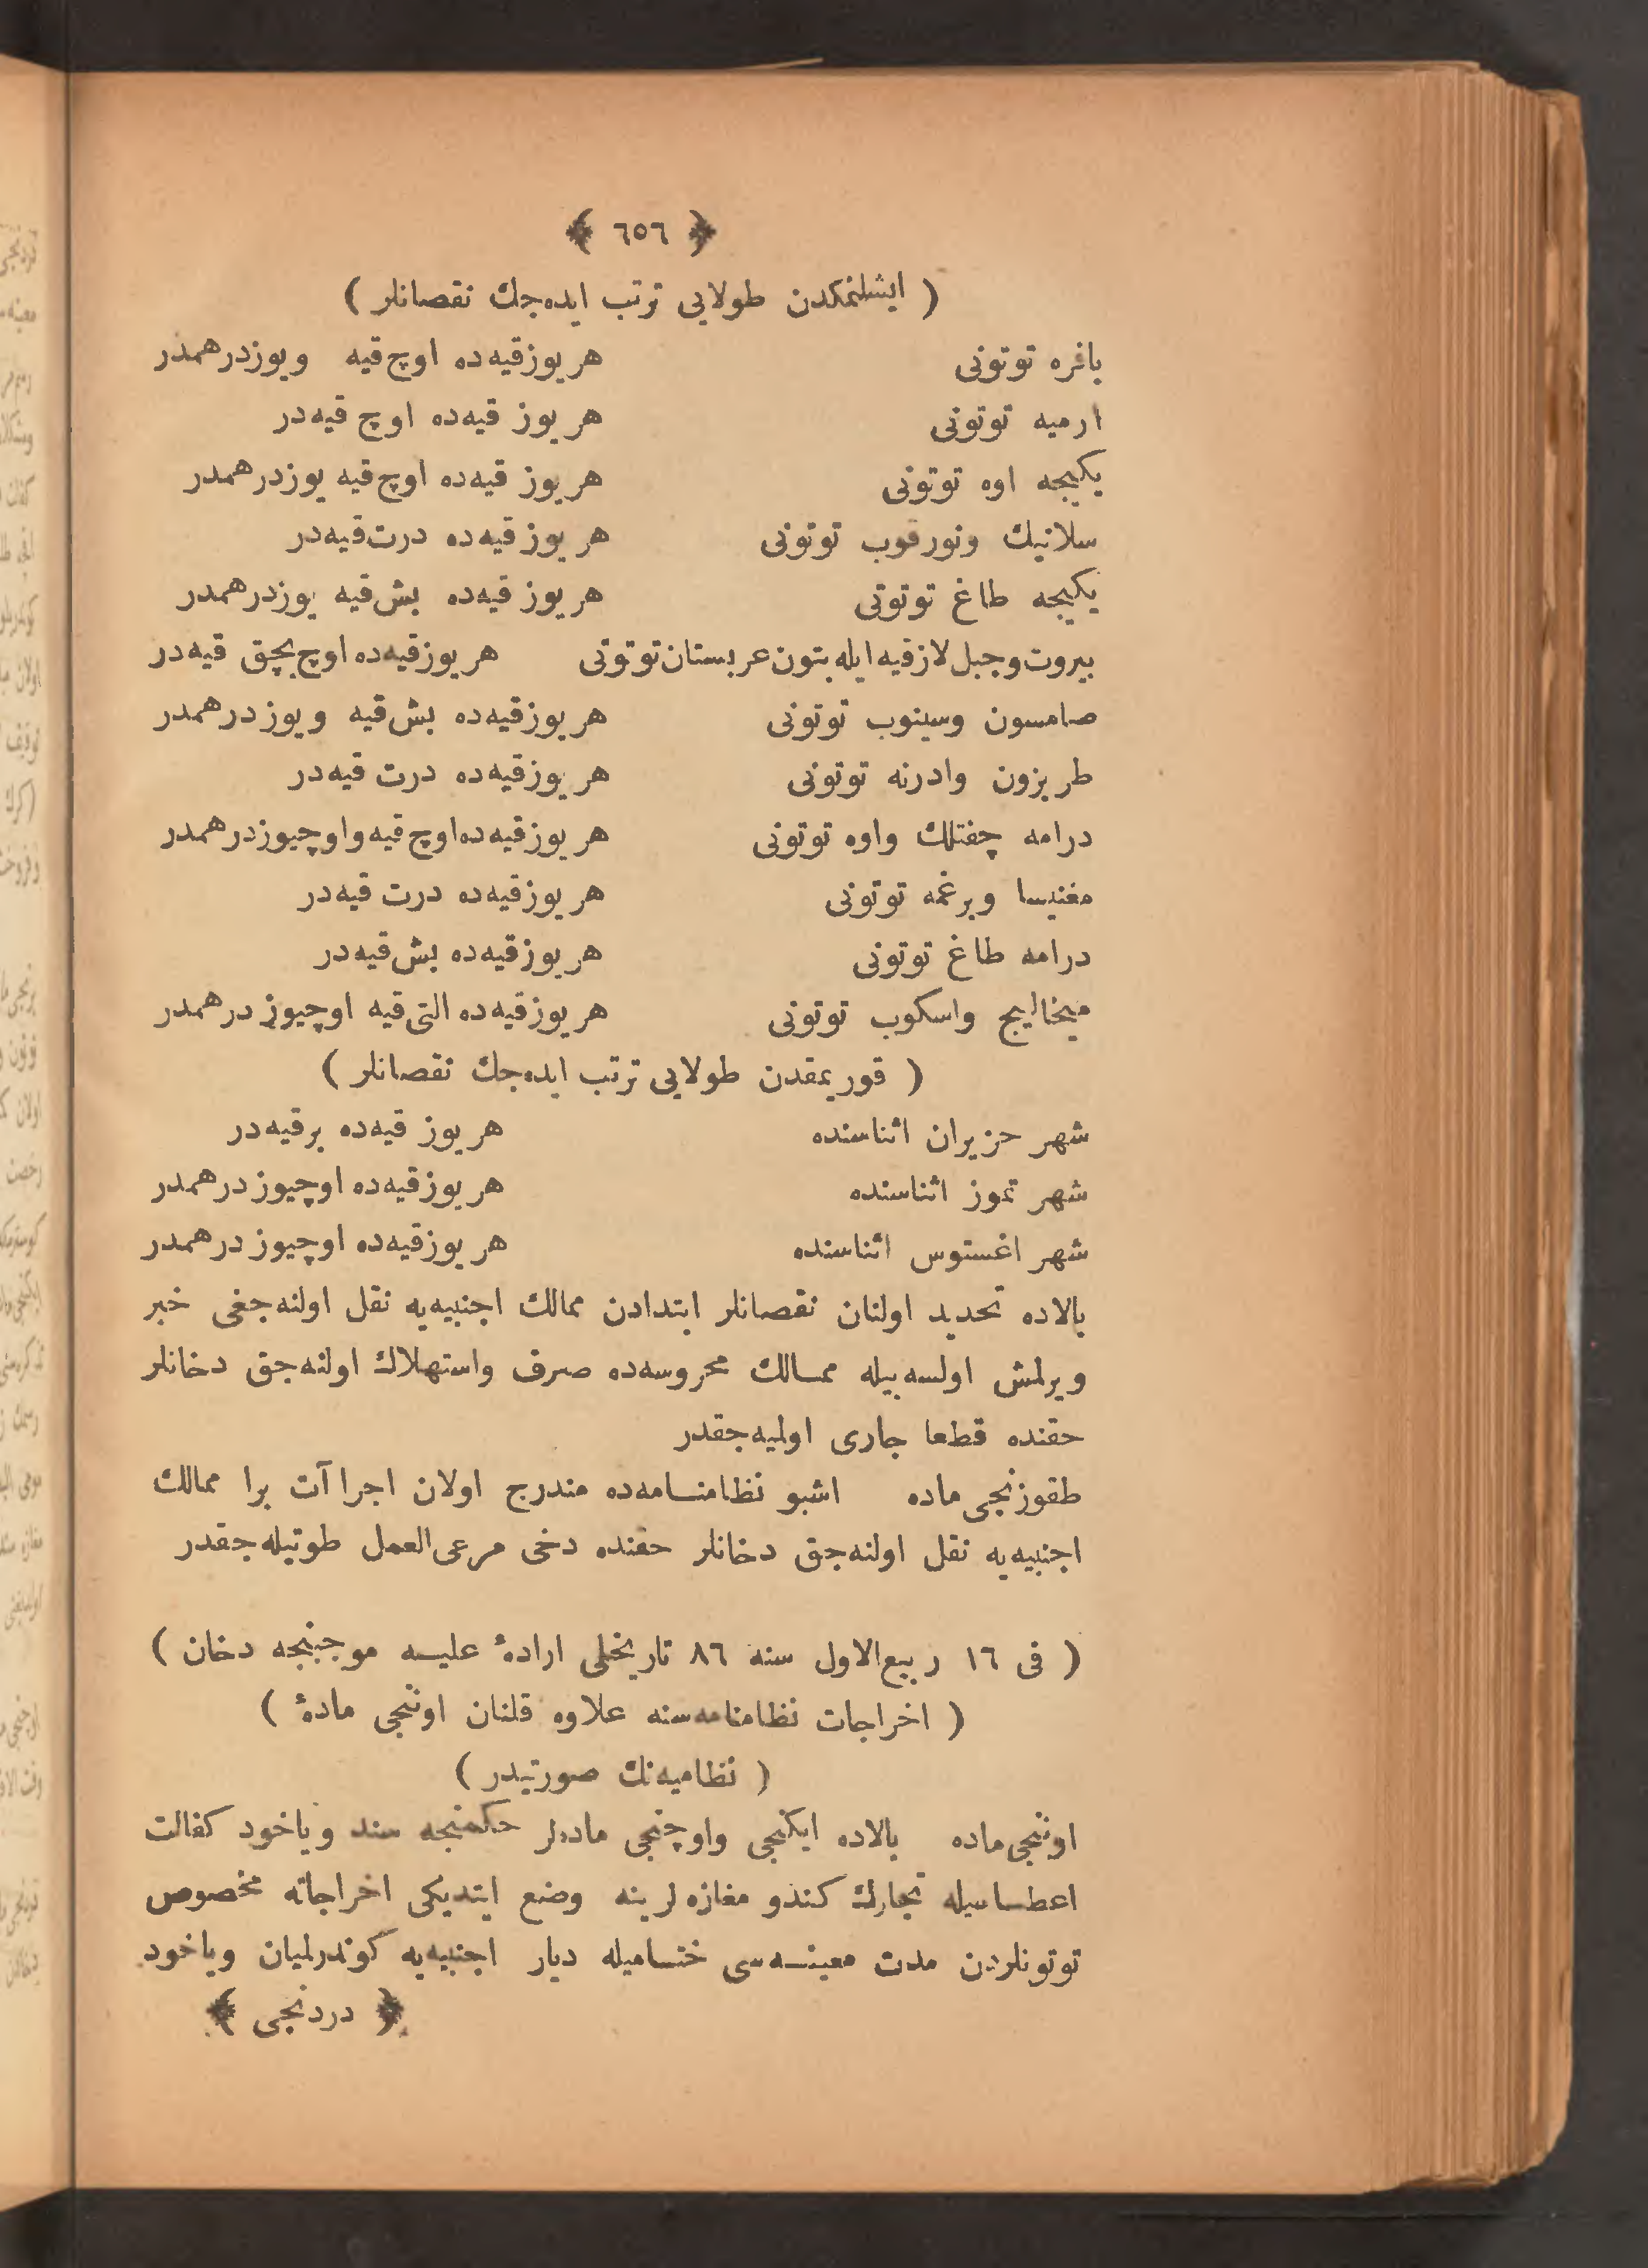 ﴿ ٦٥٦ ﴾
( ايشلنمكدن طولايى ترتب ايده‌جك نقصانلر )
بافره توتونى هر يوز قيه‌ده اوچ قيه و يوز درهمدر
ارميه توتونى هر يوز قيه‌ده اوچ قيه‌در
يكيجه اوه توتونى هر يوز قيه‌ده اوچ قيه يوز درهمدر
سلانيك ونورقوب توتونى هر يوز قيه‌ده درت قيه‌در
يكيجه طاغ توتونى هر يوز قيه‌ده بش قيه يوز درهمدر
بيروت وجبل لازقيه ايله بتون عربستان توتونى هر يوز قيه‌ده اوچ بچق قيه‌در
صامسون وسينوب توتونى هر يوز قيه‌ده بش قيه و يوز درهمدر
طربزون وادرنه توتونى هر يوز قيه‌ده درت قيه‌در
درامه چفتلك واوه توتونى هر يوز قيه‌ده اوچ قيه واوچيوز درهمدر
مغنيسا وبرغمه توتونى هر يوز قيه‌ده درت قيه‌در
درامه طاغ توتونى هر يوز قيه‌ده بش قيه‌در
ميخاليج واسكوب توتونى هر يوز قيه‌ده التى قيه اوچيوز درهمدر
( قوريمقدن طولايى ترتب ايده‌جك نقصانلر )
شهر حزيران اثناسنده هر يوز قيه‌ده بر قيه‌در
شهر تموز اثناسنده هر يوز قيه‌ده اوچيوز درهمدر
شهر اغستوس اثناسنده هر يوز قيه‌ده اوچيوز درهمدر
بالاده تحديد اولنان نقصانلر ابتدادن ممالك اجنبيه‌يه نقل اولنه‌جغى خبر
ويرلمش اولسه‌بيله ممالك محروسه‌ده صرف واستهلاك اولنه‌جق دخانلر
حقنده قطعا جارى اوليه‌جقدر
طقوزنجى ماده اشبو نظامنامه‌ده مندرج اولان اجراآت برا ممالك
اجنبيه‌يه نقل اولنه‌جق دخانلر حقنده دخى مرعى العمل طوتيله‌جقدر
( فى ١٦ ربيع الاول سنه ٨٦ تاريخلى ارادهٔ عليه موجبنجه دخان )
( اخراجات نظامنامه‌سنه علاوه قلنان اوننجى مادهٔ )
( نظاميه‌نك صورتيدر )
اوننجى ماده بالاده ايكنجى واوچنجى ماده‌لر حكمنجه سند وياخود كفالت
اعطاسيله تجارك كندو مغازه‌لرينه وضع ايتديكى اخراجاته مخصوص
توتونلردن مدت معينه‌سى ختاميله ديار اجنبيه‌يه كوندرلميان وياخود
﴿ دردنجى ﴾